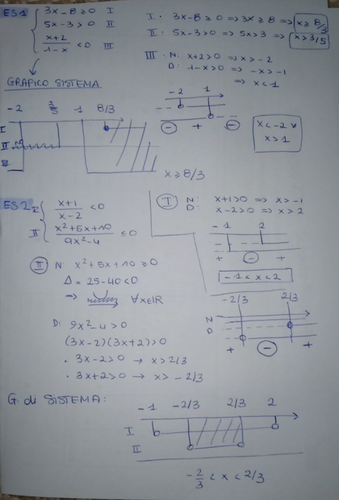 ES1 { 3x-8≥0 I
5x-3>0 II
x+2/1-x <0 III
I: 3x-8≥0 ⇒ 3x≥8 ⇒ x≥8/3
II: 5x-3>0 ⇒ 5x>3 ⇒ x>3/5
III: N: x+2>0 ⇒ x>-2
D: 1-x>0 ⇒ -x>-1
⇒ x<1
GRAFICO SISTEMA
-2 3/5 1 8/3
I
II
III
-2 1
- + -
x<-2 ∨
x>1
x≥8/3
ES2 I { x+1/x-2 <0
II x²+5x+10/9x²-4 ≤0
I N: x+1>0 ⇒ x>-1
D: x-2>0 ⇒ x>2
-1 2
N
D
+ - +
-1<x<2
II N: x²+5x+10≥0
Δ=25-40<0
⇒ ∀x∈ℝ
D: 9x²-4>0
(3x-2)(3x+2)>0
• 3x-2>0 → x>2/3
• 3x+2>0 ⇒ x>-2/3
-2/3 2/3
N
D
+ - +
G. di SISTEMA:
-1 -2/3 2/3 2
I
II
-2/3<x<2/3